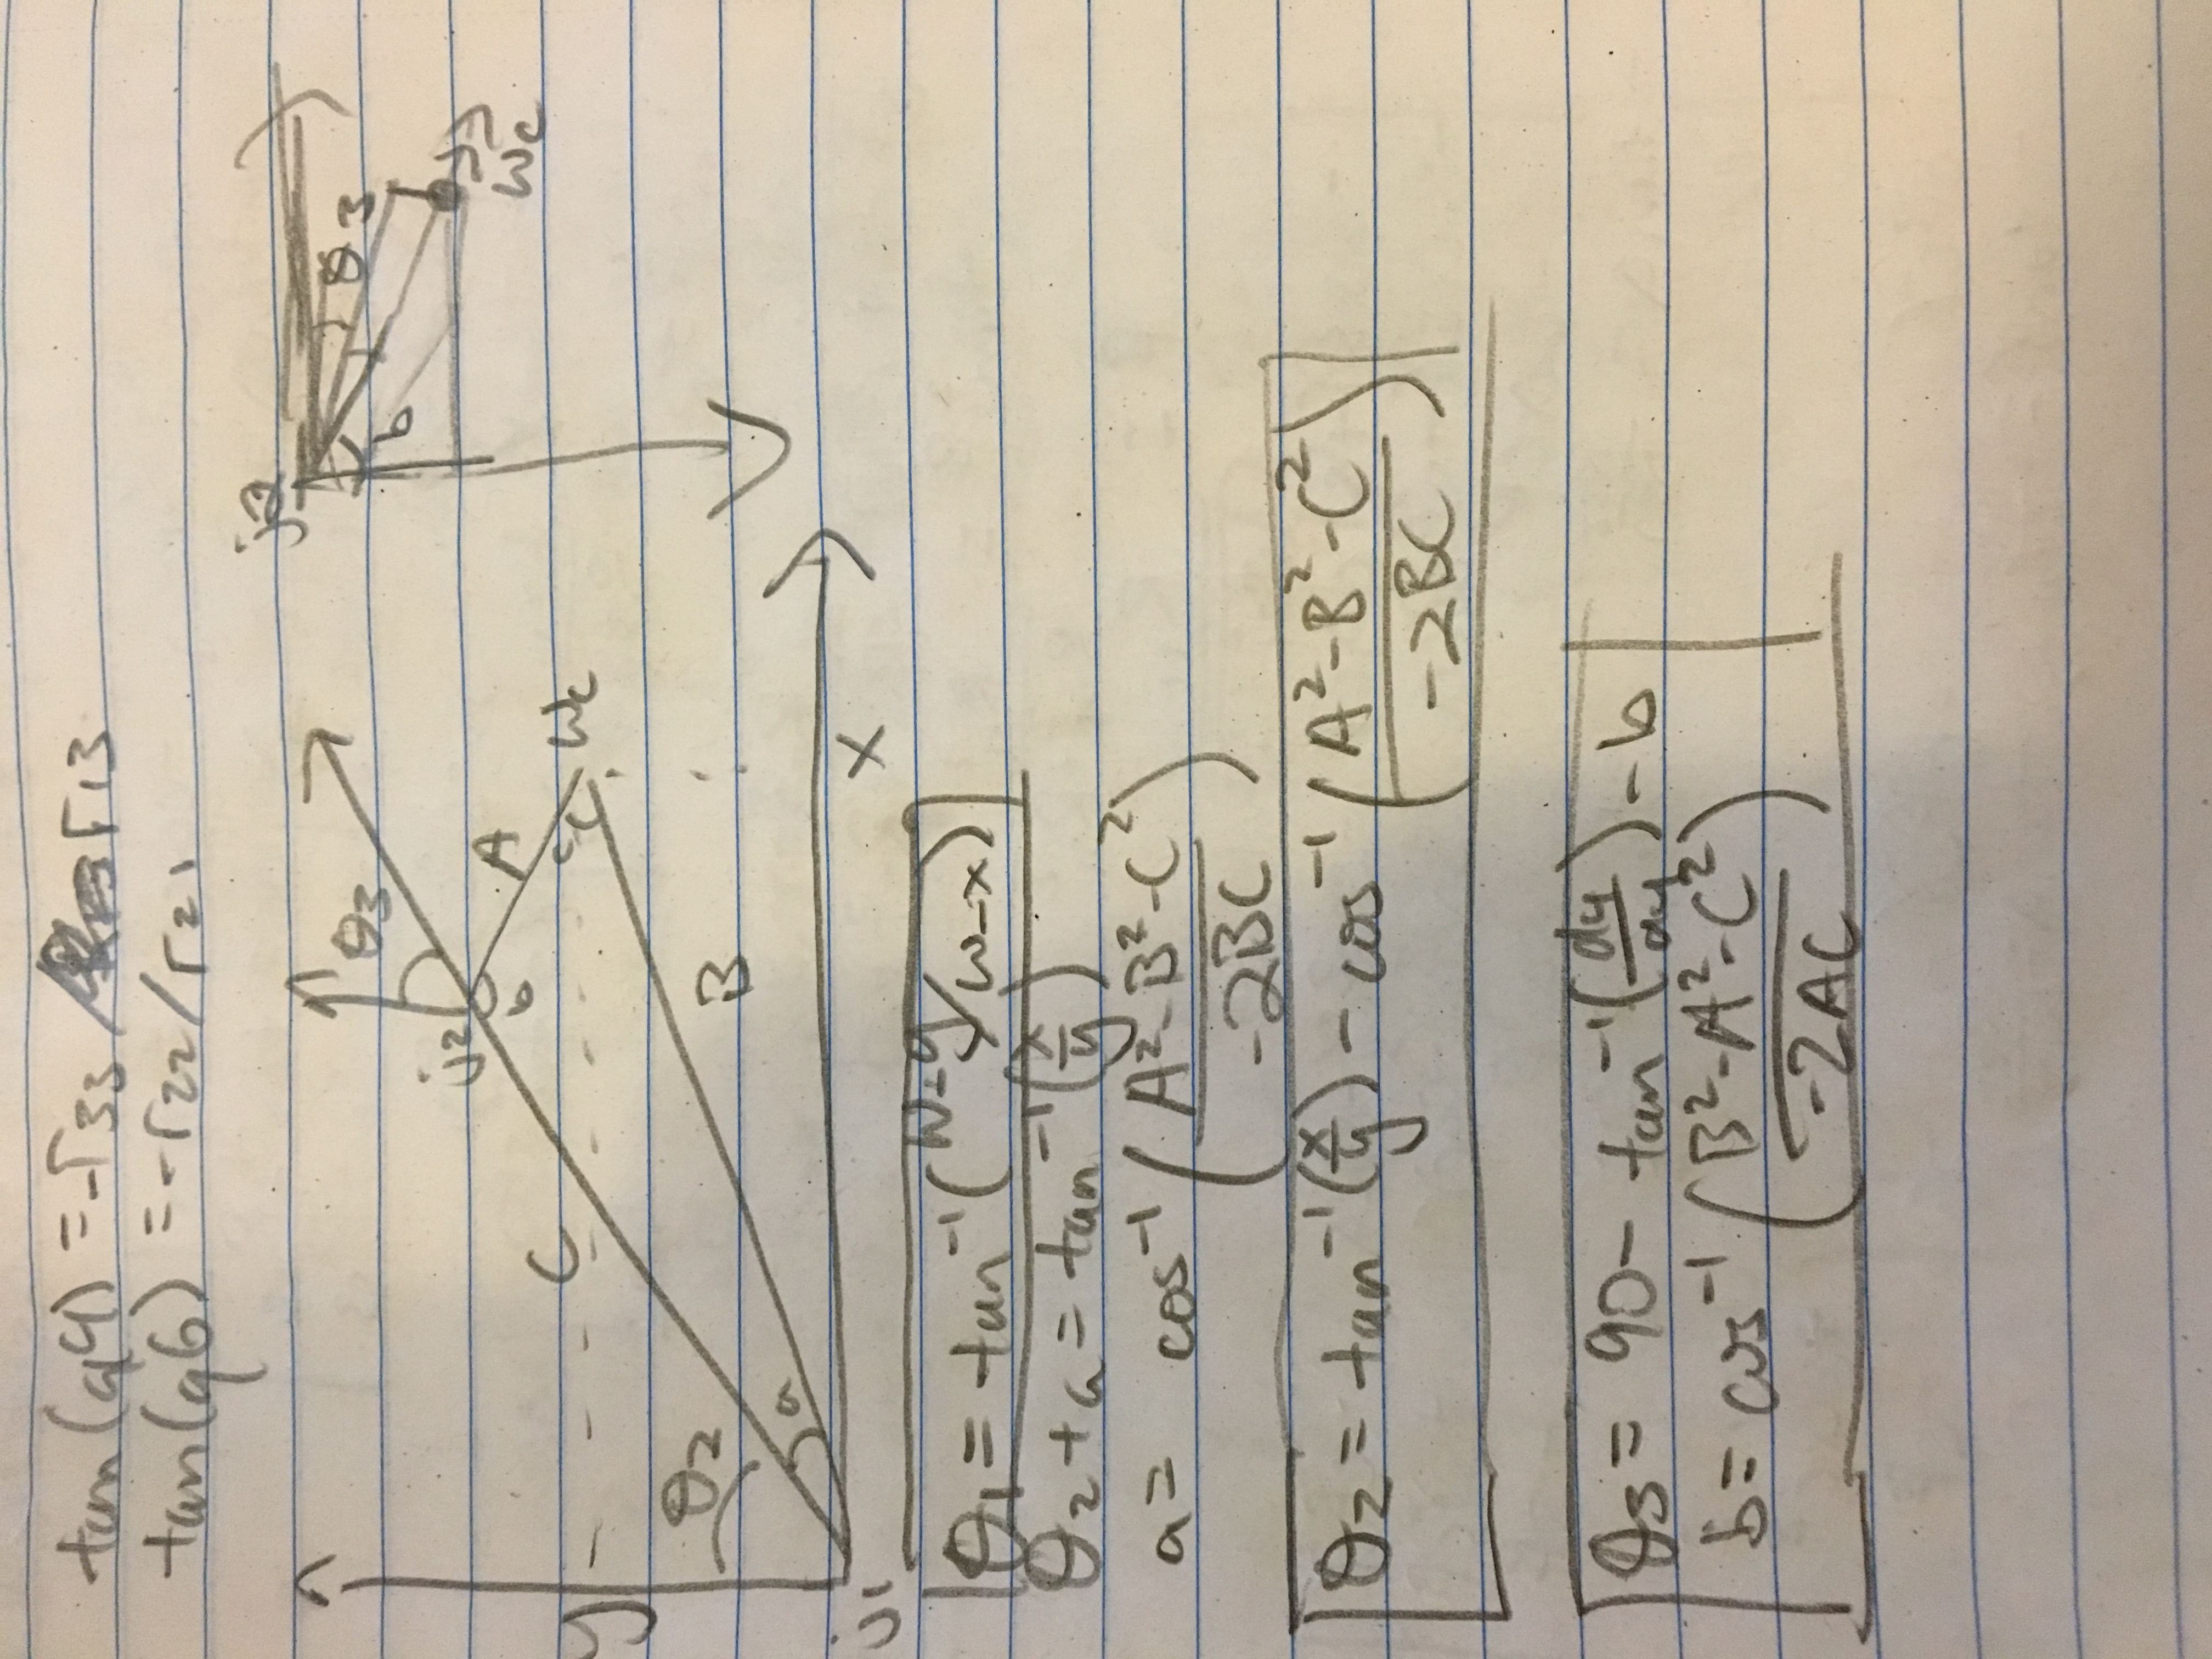 tan(q4) = -r33 / r13
tan(q6) = -r22/r21
j2
θ3
θ3
j2
b
A
b
C
c
Wc
Wc
y
θ2
B
a
x
j1
θ1 = tan⁻¹(w-y/w-x)
θ2+a = tan⁻¹(x/y)
a = cos⁻¹(A²-B²-C²/-2BC)
θ2 = tan⁻¹(x/y) - cos⁻¹(A²-B²-C²/-2BC)
θ3 = 90 - tan⁻¹(d4/a4) - b
b = cos⁻¹(B²-A²-C²/-2AC)